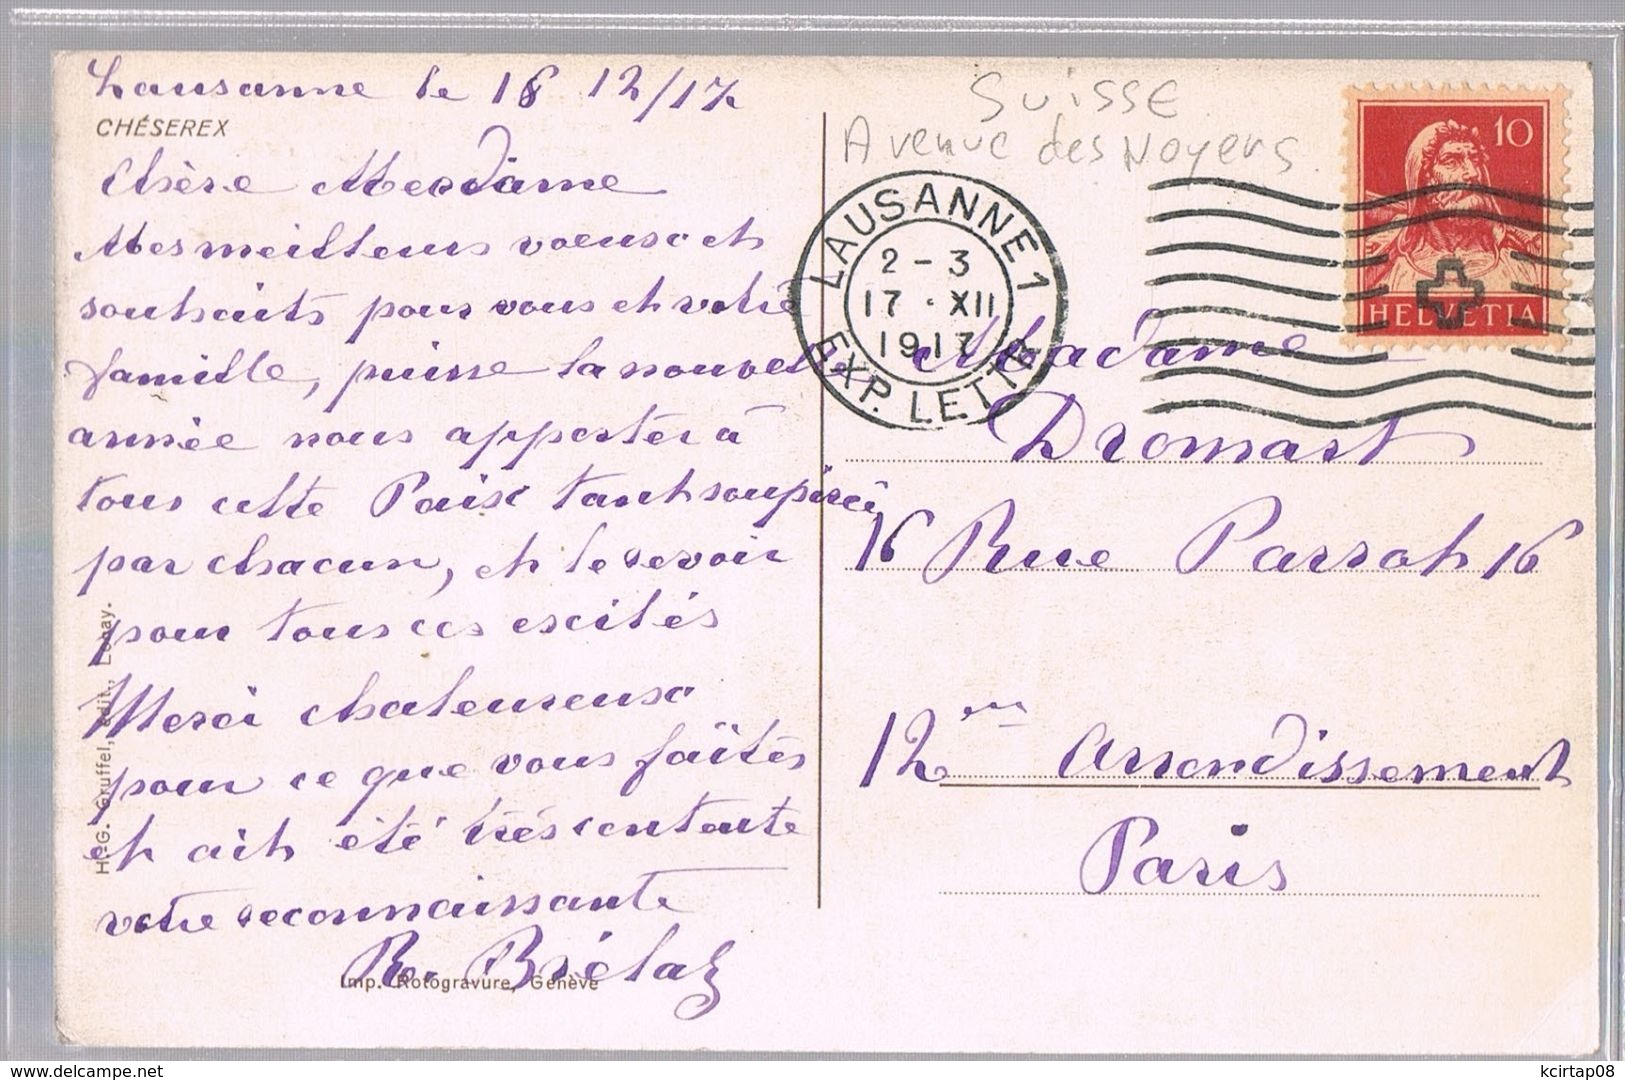 Lausanne le 16 12/17
CHÉSEREX
Chère Madame
Mes meilleurs voeux et
souhaits pour vous et votre
famille, puisse la nouvelle
année nous apporter à
tous cette Paix tant soupiré
par chacun, et le revoir
pour tous ces exilés
Merci chaleureux
pour ce que vous faites
et ait été très contente
votre reconnaissante
R. Briélaz
Imp. Rotogravure, Genève
H.-G. Gruffel, édit., Lonay.
SUISSE
Avenue des Noyers
LAUSANNE 1
2 - 3
17 · XII
1917
EXP. LETTR
10
HELVETIA
Madame
Dromart
16 Rue Parrot 16
12 eme arrondissement
Paris
delcampe.net
kcirtap08